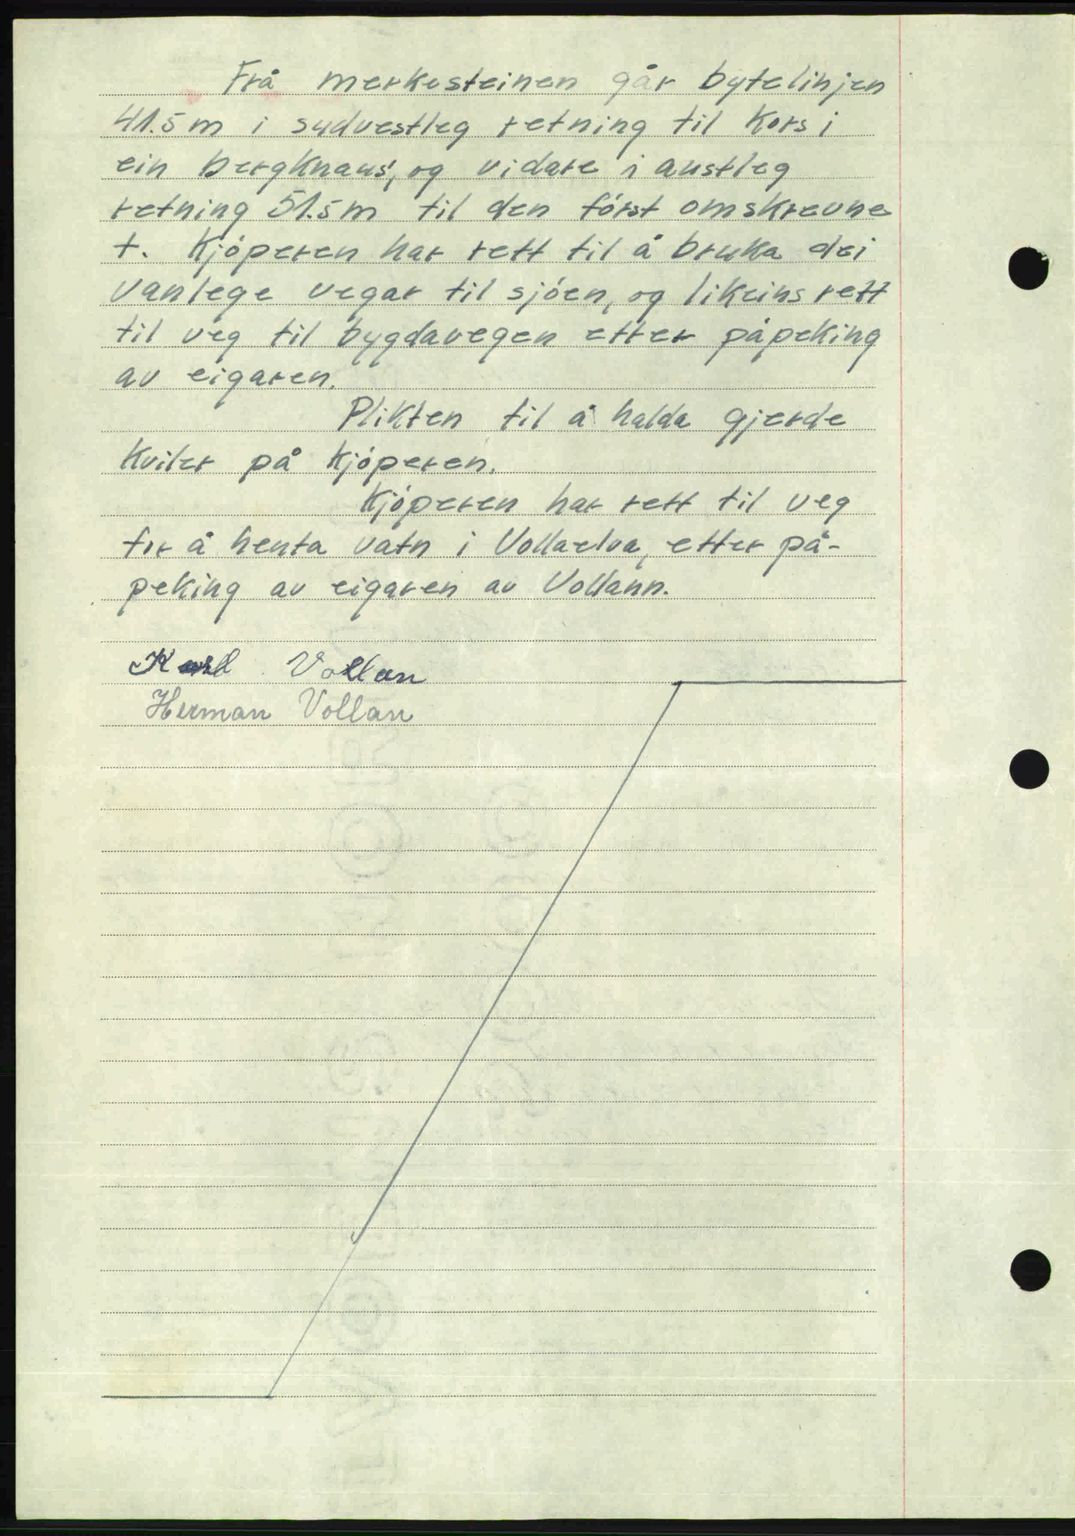 Frå merkesteinen går bytelinjen
41.5 m i sydvestleg retning til Kors i
ein bergknaus, og vidare i austleg
retning 51.5 m til den först omskrevne
t. Kjöperen har rett til å bruka dei
vanlege vegar til sjöen, og likeins rett
til veg til bygdavegen etter påpeking
av eigaren.
Plikten til å halda gjerde
Kviler på Kjöperen.
Kjöperen har rett til veg
for å henta vatn i Vollaelva, etter på-
peking av eigaren av Vollann.
Karl Vollan
Herman Vollan